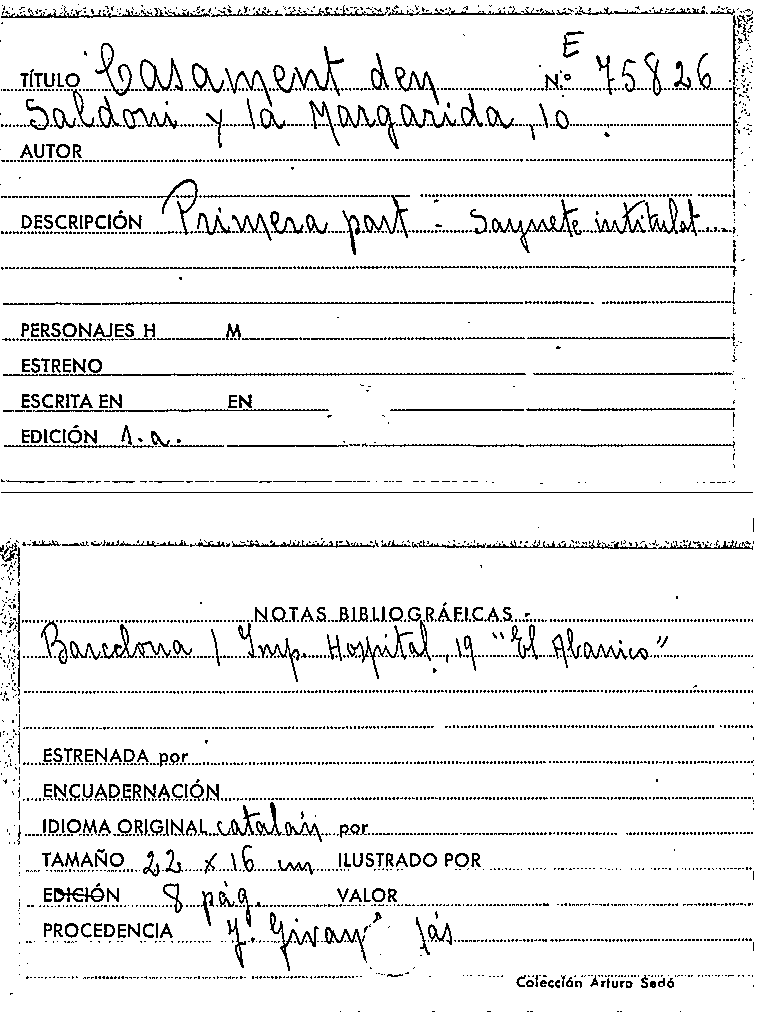 E
TÍTULO Casament den N.º 75826
Saldoni y la Margarida, lo
AUTOR
DESCRIPCIÓN Primera part - Saynete intitulat...
PERSONAJES H M
ESTRENO
ESCRITA EN EN
EDICIÓN 1.a.
NOTAS BIBLIOGRÁFICAS -
Barcelona / Imp. Hospital, 19 "El Abanico"
ESTRENADA por
ENCUADERNACIÓN
IDIOMA ORIGINAL catalán por
TAMAÑO 22 x 16 cm ILUSTRADO POR
EDICIÓN 8 pág. VALOR
PROCEDENCIA J.
Colección Arturo Sedó